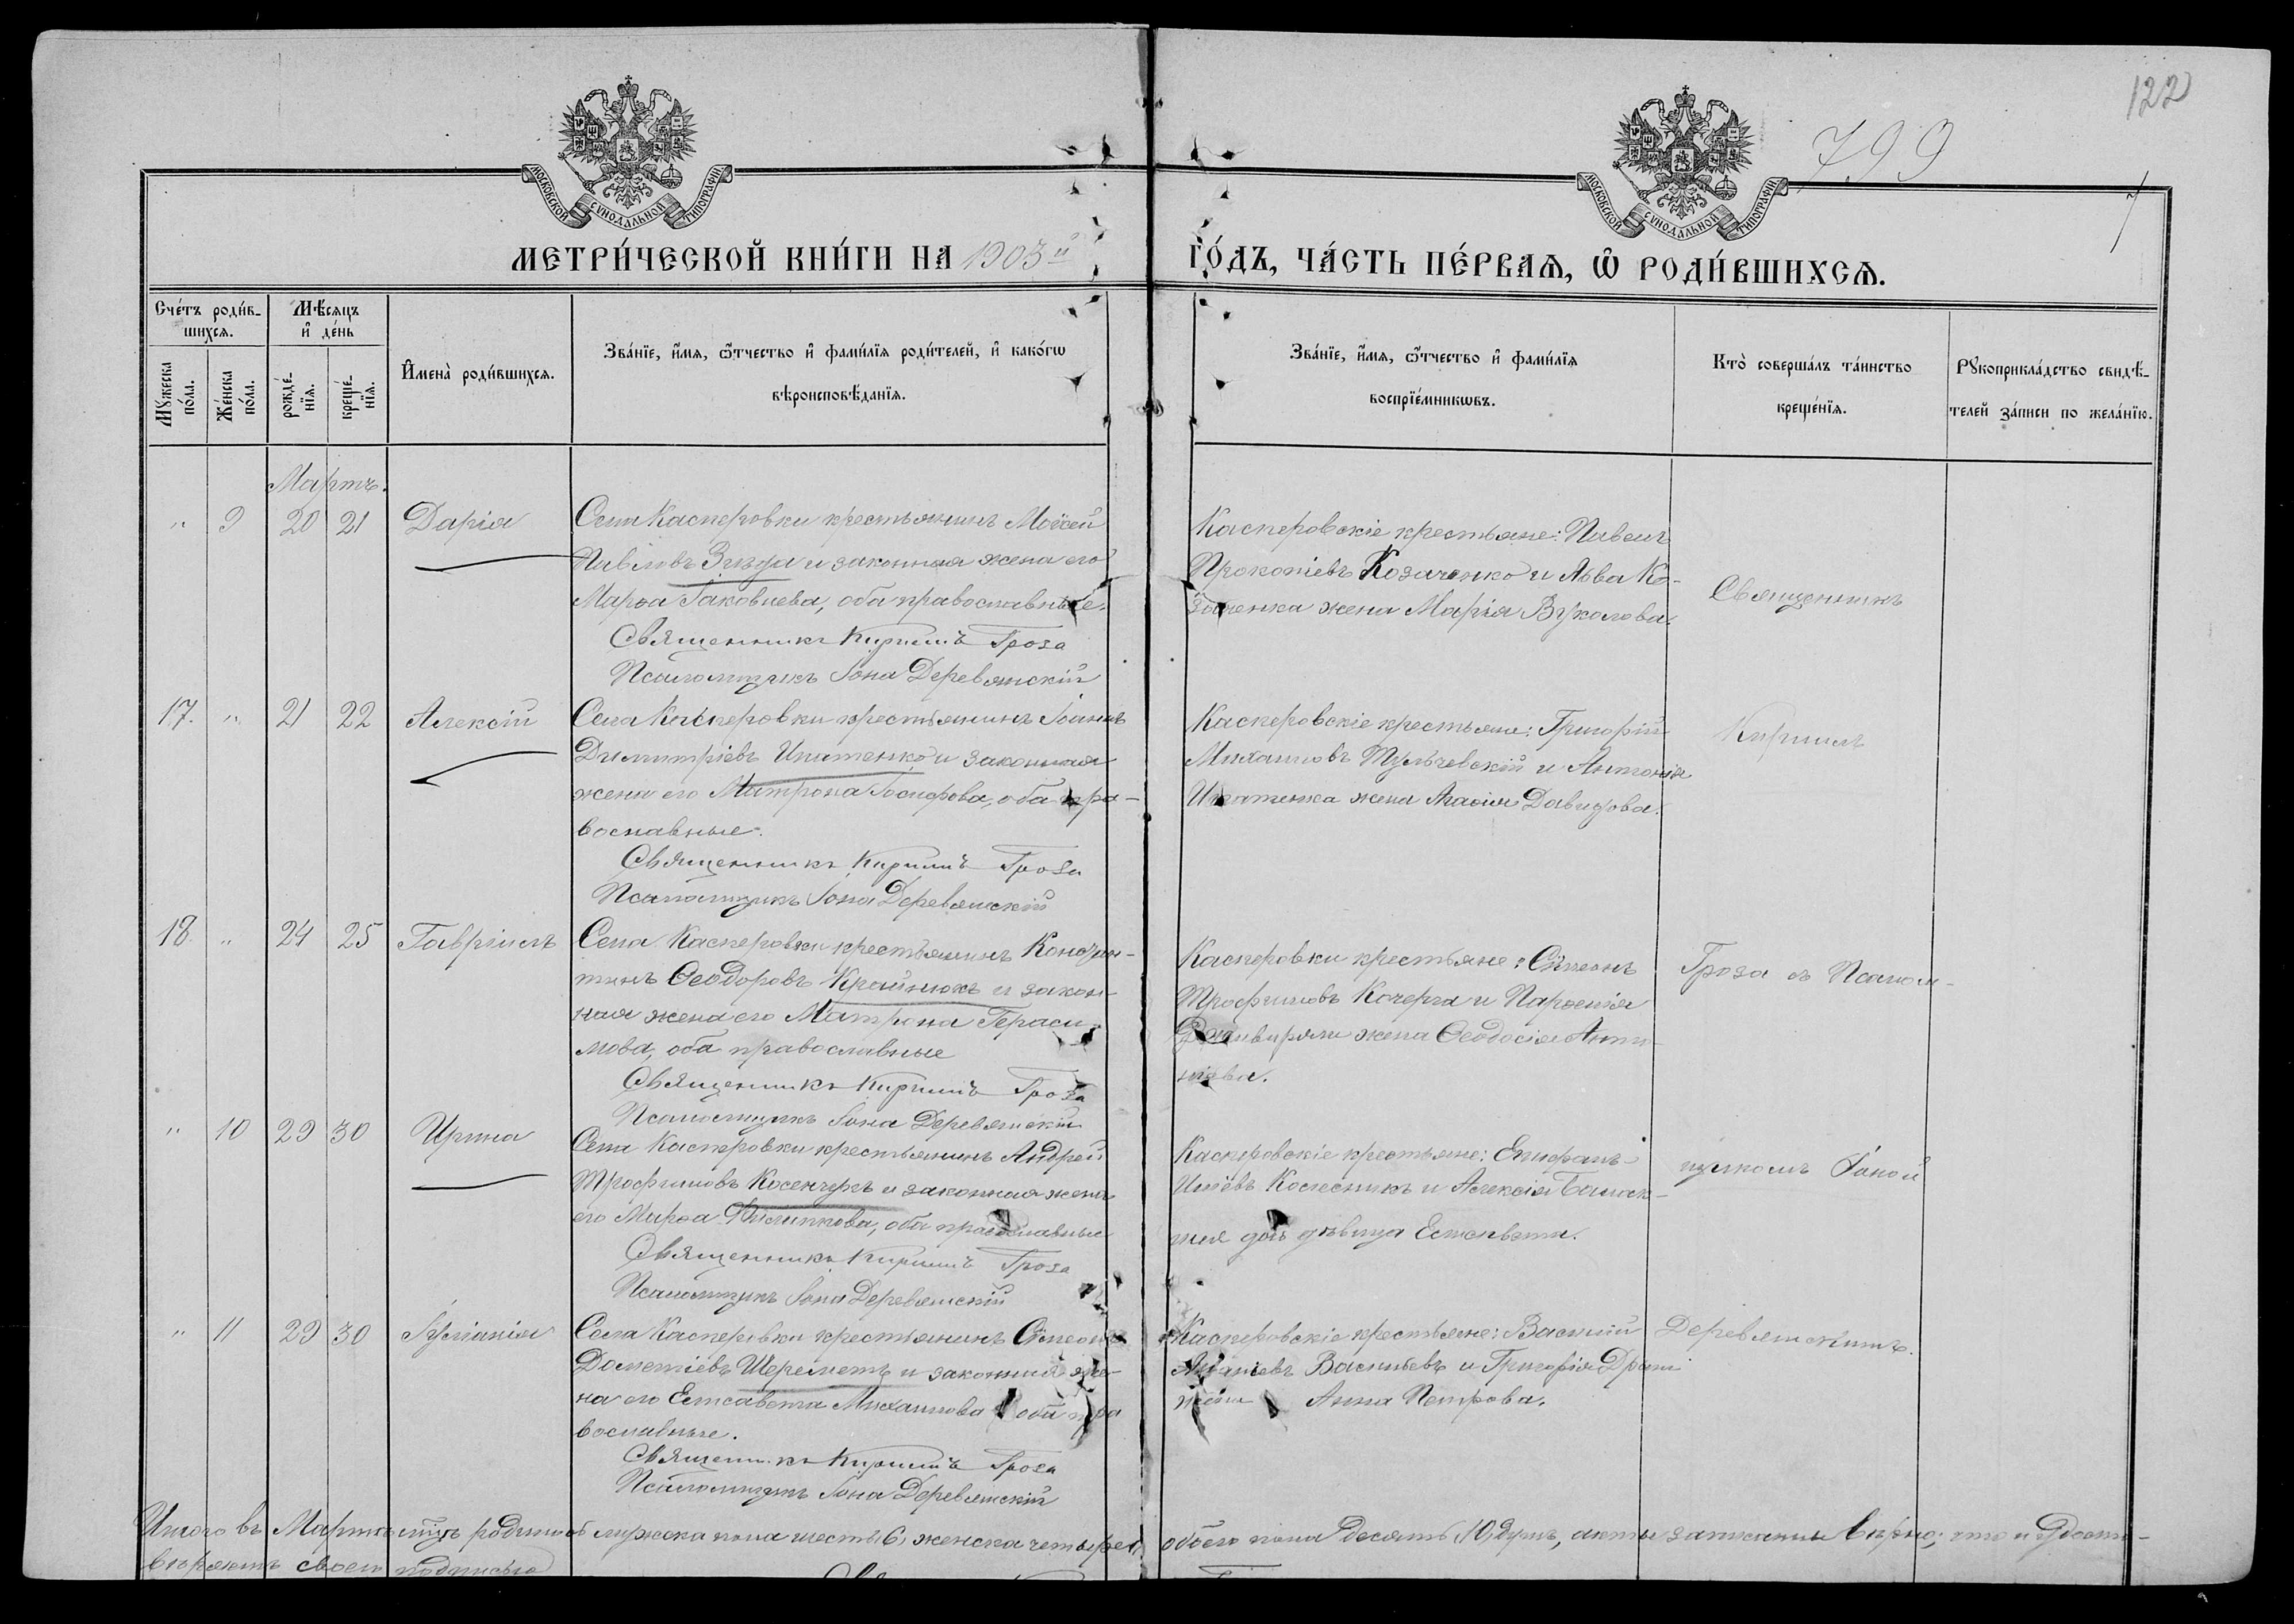 122
799
7
МОСКОВСКОЙ СѴНОДАЛЬНОЙ ТИПОГРАФІИ
МОСКОВСКОЙ СѴНОДАЛЬНОЙ ТИПОГРАФІИ
МЕТРИ́ЧЕСКОЙ КНИ́ГИ НА 1903й
ГО́ДЪ, ЧА́СТЬ ПЕ́РВАѦ, Ѡ҃ РОДИ́ВШИХСѦ.
Сче́тъ роди́в-
шихсѧ.
Мꙋ́жеска
по́ла.
Же́нска
по́ла.
Мѣ́сѧцъ
и҆ де́нь
рожде́-
нїѧ.
креще́-
нїѧ.
И҆мена̀ роди́вшихсѧ.
Зва́нїе, и҆́мѧ, ѻ҆́тчество и҆ фами́лїѧ роди́телей, и҆ како́гѡ
вѣроисповѣ́данїѧ.
Зва́нїе, и҆́мѧ, ѻ҆́тчество и҆ фами́лїѧ
воспрїе́мникѡвъ.
Кто̀ соверша́лъ та́инство
креще́нїѧ.
Рꙋкоприкла́дство свидѣ́-
телей за́писи по жела́нїю.
Мартъ.
" 9 20 21 Дарія
Села Касперовки крестьянинъ Моѵсей
Павловъ Зигза и законная жена его
Марѳа Іаковлева, оба православные.
Священникъ Кириллъ Гроза
Псаломщикъ Іона Деревянскій
Касперовскіе крестьяне: Павелъ
Прокопіевъ Козаченко и Льва Ко-
заченка жена Марія Вуколова.
Священникъ
17. " 21 22 Алексій
Села Касперовки крестьянинъ Іоаннъ
Димитріевъ Ипатенко и законная
жена его Матрона Іосифова, оба пра-
вославные.
Священникъ Кириллъ Гроза
Псаломщикъ Іона Деревянскій
Касперовскіе крестьяне: Григорій
Михаиловъ Тульчевскій и Антонія
Ипатенка жена Агаѳія Давидова.
Кириллъ
18. " 24 25 Гавріилъ
Села Касперовки крестьянинъ Констан-
тинъ Ѳеодоровъ Крайнюкъ и закон-
ная жена его Матрона Гераси-
мова, оба православные
Священникъ Кириллъ Гроза
Псаломщикъ Іона Деревянскій
Касперовки крестьяне: Сѵмеонъ
Трофимовъ Кочерга и Парѳенія
жена Ѳеодосія Анто-
ніева.
Гроза съ Псалом-
" 10 29 30 Ирина
Села Касперовки крестьянинъ Андрей
Трофимовъ Косенчукъ и законная жена
его Марѳа Филиппова, оба православные
Священникъ Кириллъ Гроза
Псаломщикъ Іона Деревянскій
Касперовскіе крестьяне: Епифанъ
Колесникъ и Алексія
дѣвица Елисавета.
щикомъ Іоной
" 11 29 30 Іуліанія
Села Касперовки крестьянинъ Сѵмеонъ
Дометіевъ Шереметъ и законная же-
на его Елисавета Михаилова оба пра
вославные.
Священникъ Кириллъ Гроза
Псаломщикъ Іона Деревянскій
Касперовскіе крестьяне: Василій
Ананіевъ Васильевъ и Григорія
жена Анна Петрова.
Деревянскимъ.
Итого въ Мартѣ мцѣ родилось мужеска пола шесть 6, женска четыре 4, обоего пола десять (10) душъ, акты записаны вѣрно, что и удосто-
вѣряемъ своею подписью